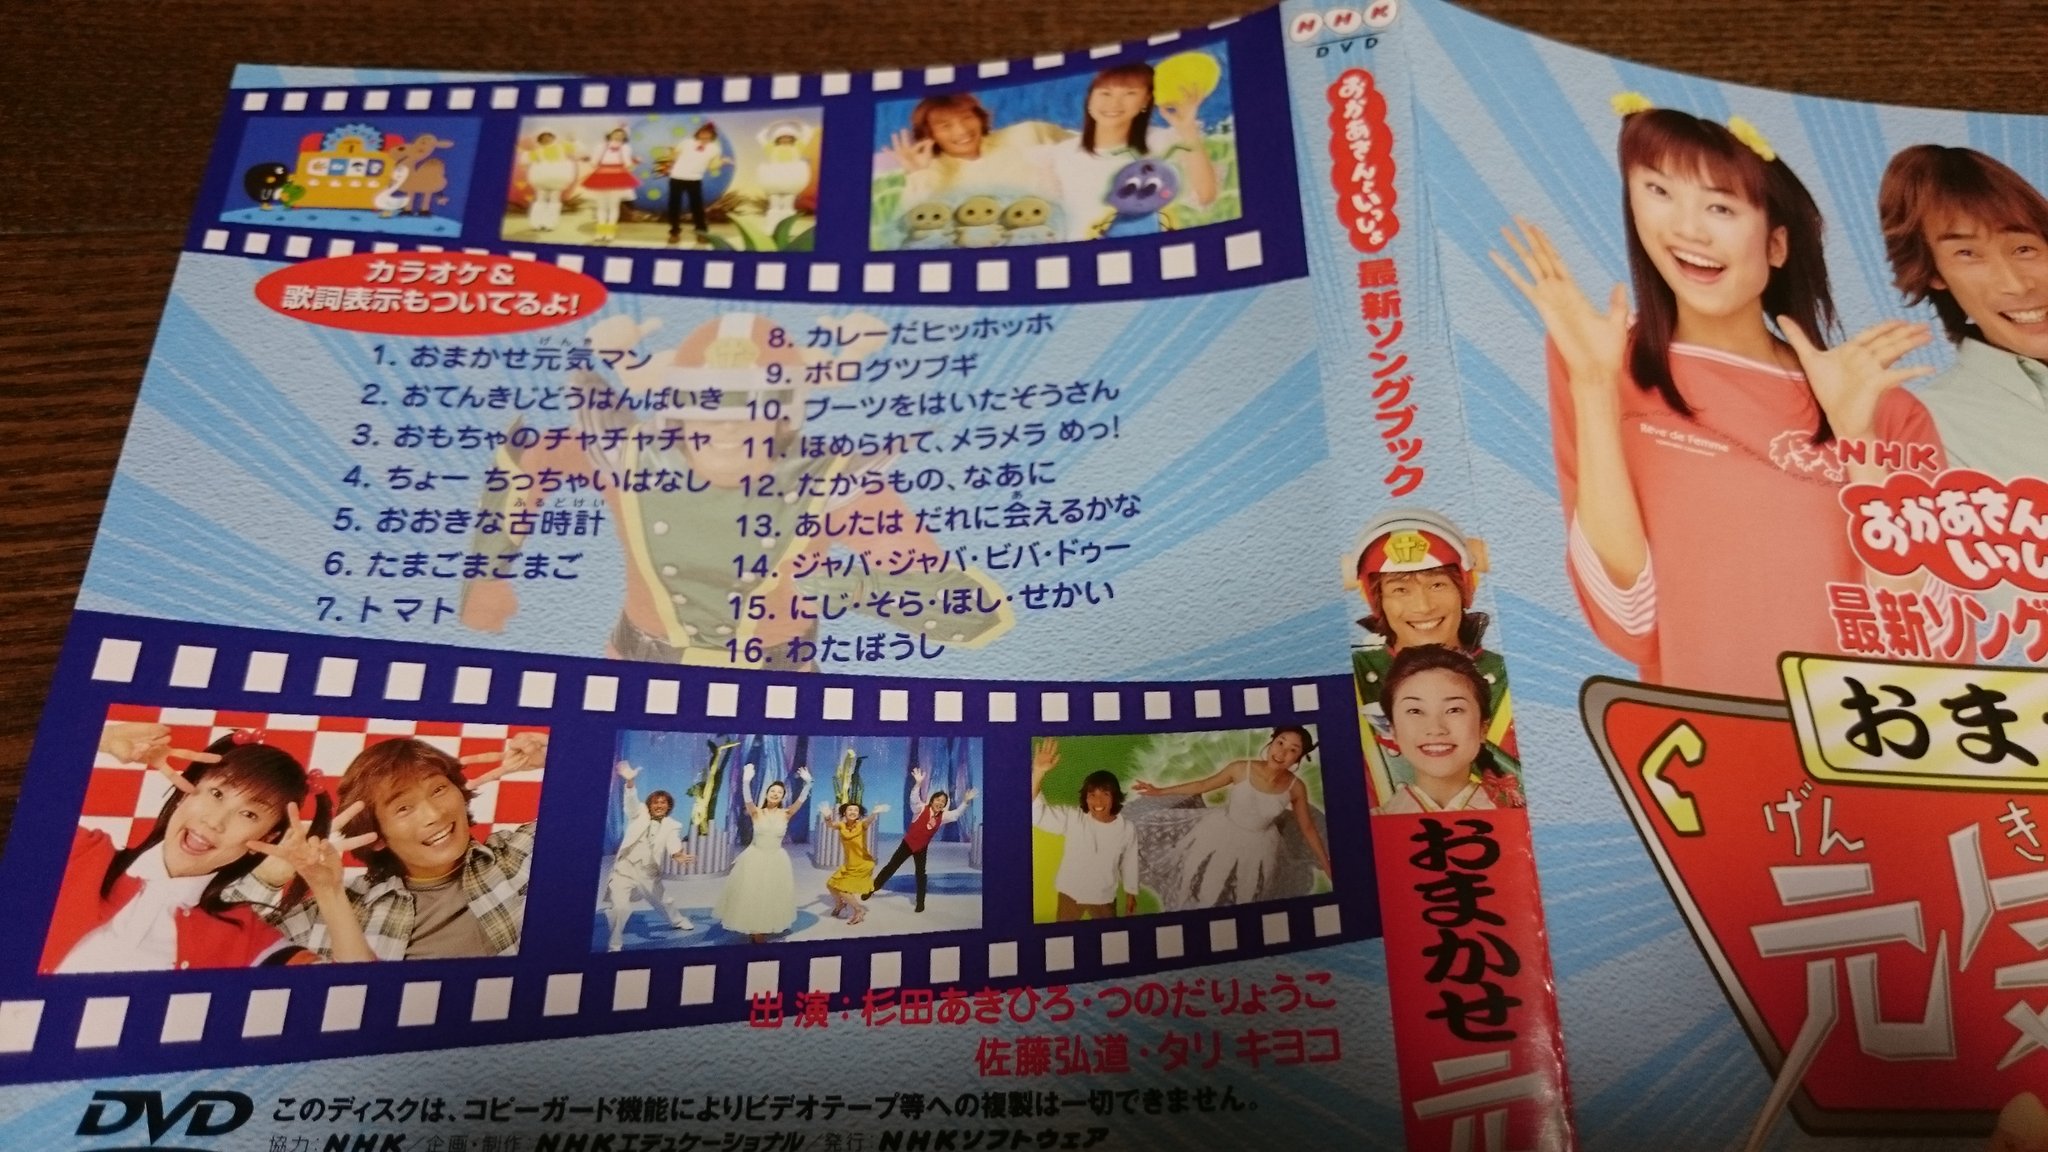 カラオケ&
歌詞表示もついてるよ!
げんき
1. おまかせ元気マン
2. おてんきじどうはんばいき
3. おもちゃのチャチャチャ
4. ちょー ちっちゃいはなし
ふるどけい
5. おおきな古時計
6. たまごまごまご
7. トマト
8. カレーだヒッホッホ
9. ボログツブギ
10. ブーツをはいたぞうさん
11. ほめられて、メラメラ めっ!
12. たからもの、なあに
あ
13. あしたは だれに会えるかな
14. ジャバ・ジャバ・ビバ・ドゥー
15. にじ・そら・ほし・せかい
16. わたぼうし
出演:杉田あきひろ・つのだりょうこ
佐藤弘道・タリ キヨコ
DVD
このディスクは、コピーガード機能によりビデオテープ等への複製は一切できません。
協力:NHK/企画・制作:NHKエデュケーショナル/発行:NHKソフトウェア
NHK
DVD
おかあさんといっしょ
最新ソングブック
げ
おまかせ元
Rêve de Femme
NHK
おかあさん
いっし
最新ソング
おま
げん き
元気